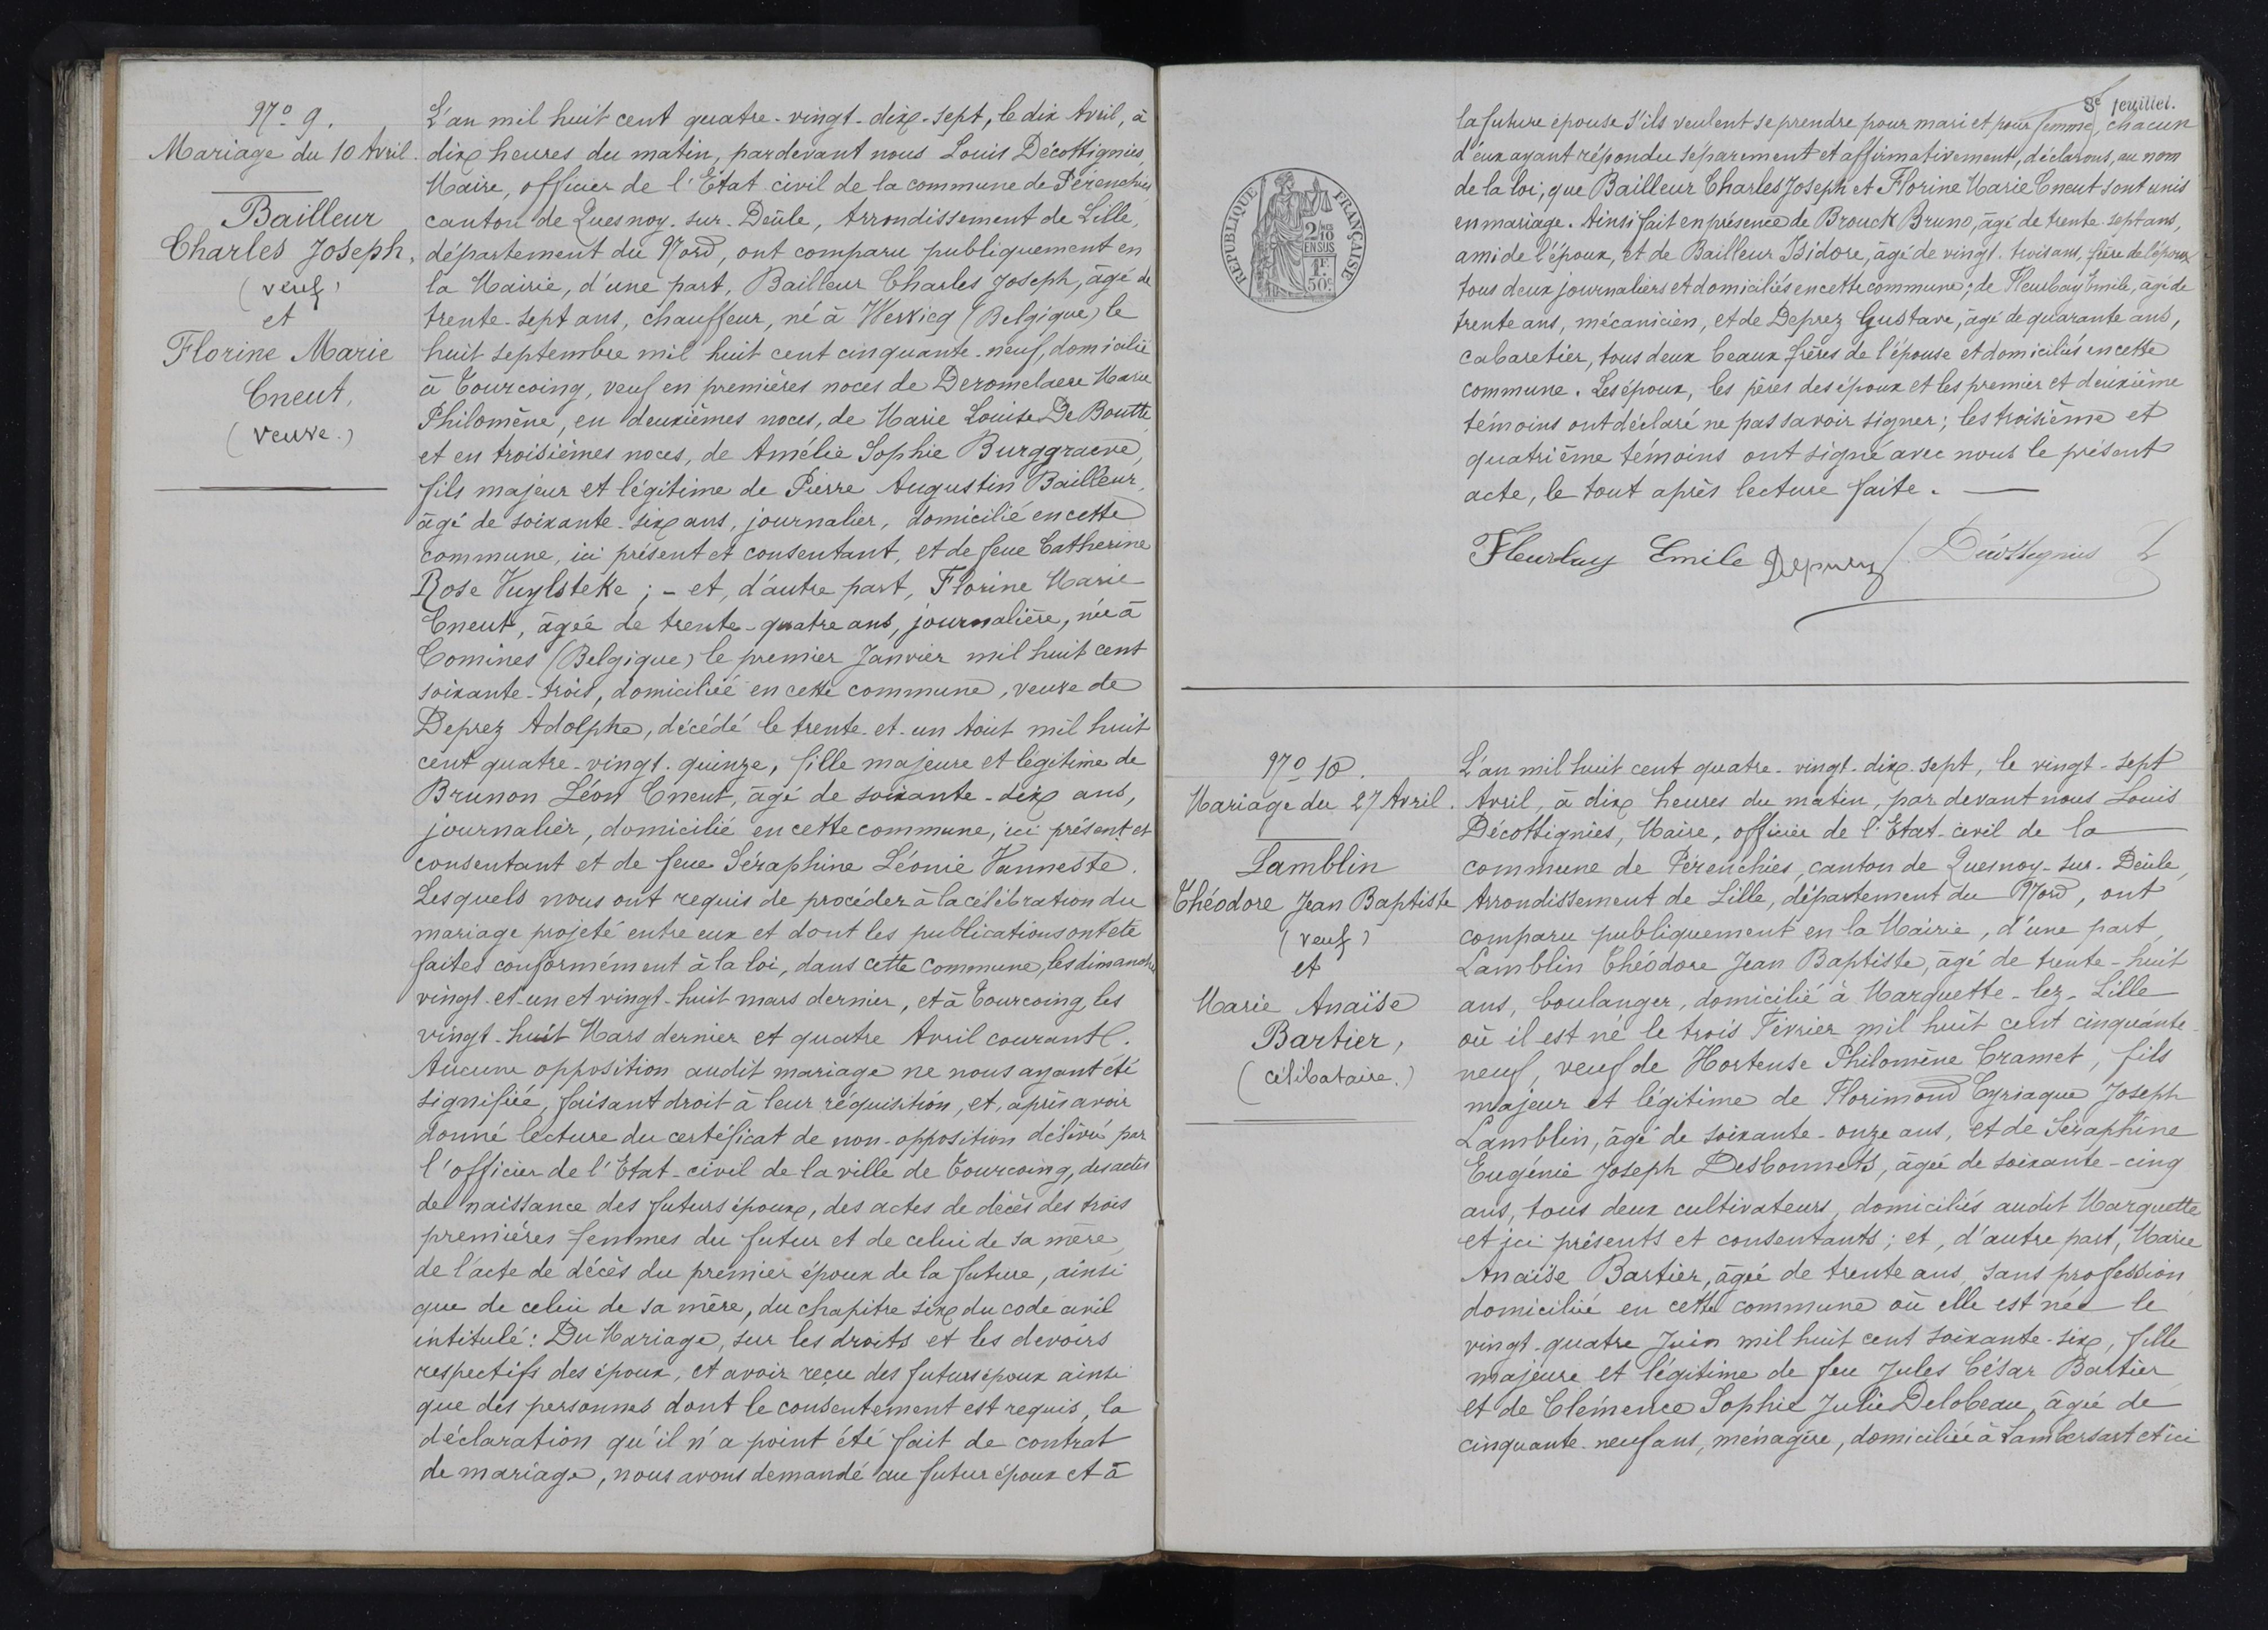 N° 9.
Mariage du 10 Avril.
Bailleur
Charles Joseph,
(veuf)
et
Florine Marie
Cneut,
(veuve.)
L'an mil huit cent quatre-vingt-dix-sept, le dix Avril, à
dix heures du matin, pardevant nous Louis Décottignies,
Maire, officier de l'Etat civil de la commune de Pérenchies
canton de Quesnoy-sur-Deûle, Arrondissement de Lille,
département du Nord, ont comparu publiquement en
la Mairie, d'une part, Bailleur Charles Joseph, âgé de
trente-sept ans, chauffeur, né à Wervicq (Belgique) le
huit septembre mil huit cent cinquante-neuf, domicilié
à Tourcoing, veuf en premières noces de Deromelaere Marie
Philomène, en deuxièmes noces, de Marie Louise De Boutte
et en troisièmes noces, de Amélie Sophie Burggraeve,
fils majeur et légitime de Pierre Augustin Bailleur,
âgé de soixante-six ans, journalier, domicilié en cette
commune, ici présent et consentant, et de feue Catherine
Rose Vuylsteke ; - et, d'autre part, Florine Marie
Cneut, âgée de trente-quatre ans, journalière, née à
Comines (Belgique) le premier Janvier mil huit cent
soixante-trois, domiciliée en cette commune, veuve de
Deprez Adolphe, décédé le trente-et-un Aout mil huit
cent quatre-vingt-quinze, fille majeure et légitime de
Brunon Léon Cneut, âgé de soixante-dix ans,
journalier, domicilié en cette commune, ici présent et
consentant et de feue Séraphine Léonie Vanneste.
Lesquels nous ont requis de procéder à la célébration du
mariage projeté entre eux et dont les publications ont été
faites conformément à la loi, dans cette commune, les dimanches
vingt-et-un et vingt-huit mars dernier, et à Tourcoing les
vingt-huit Mars dernier et quatre Avril courant.
Aucune opposition audit mariage ne nous ayant été
signifiée, faisant droit à leur réquisition, et, après avoir
donné lecture du certificat de non-opposition délivré par
l'officier de l'Etat-civil de la ville de Tourcoing, des actes
de naissance des futurs époux, des actes de décès des trois
premières femmes du futur et de celui de sa mère,
de l'acte de décès du premier époux de la future, ainsi
que de celui de sa mère, du chapitre six du code civil
intitulé : Du Mariage, sur les droits et les devoirs
respectifs des époux, et avoir reçu des futurs époux ainsi
que des personnes dont le consentement est requis, la
déclaration qu'il n'a point été fait de contrat
de mariage, nous avons demandé au futur époux et à
8e feuillet.
REPUBLIQUE FRANÇAISE
2/10
EN SUS
1F.
50c.
la future épouse s'ils veulent se prendre pour mari et pour femme, chacun
d'eux ayant répondu séparement et affirmativement, déclarons, au nom
de la loi, que Bailleur Charles Joseph et Florine Marie Cneut sont unis
en mariage. Ainsi fait en présence de Brouck Bruno, âgé de trente-sept ans,
ami de l'époux, et de Bailleur Isidore, âgé de vingt-trois ans, frère de l'époux
tous deux journaliers et domiciliés en cette commune ; de Fleurbay Emile, âgé de
trente ans, mécanicien, et de Deprez Gustave, âgé de quarante ans,
cabaretier, tous deux beaux frères de l'épouse et domiciliés en cette
commune. Les époux, les pères des époux et les premier et deuxième
témoins ont déclaré ne pas savoir signer ; les troisième et
quatrième témoins ont signé avec nous le présent
acte, le tout après lecture faite.
Fleurbay Emile Deprez Décottignies L
N° 10.
Mariage du 27 Avril.
Lamblin
Théodore Jean Baptiste
(veuf)
et
Marie Anaïse
Bartier,
(célibataire.)
L'an mil huit cent quatre-vingt-dix-sept, le vingt-sept
Avril, à dix heures du matin, par devant nous Louis
Décottignies, Maire, officier de l'Etat-civil de la
commune de Pérenchies, canton de Quesnoy-sur-Deûle,
Arrondissement de Lille, département du Nord, ont
comparu publiquement en la Mairie, d'une part,
Lamblin Théodore Jean Baptiste, âgé de trente-huit
ans, boulanger, domicilié à Marquette-lez-Lille
où il est né le trois Février mil huit cent cinquante-
neuf, veuf de Hortense Philomène Cramet, fils
majeur et légitime de Florimond Cyriaque Joseph
Lamblin, âgé de soixante-onze ans, et de Séraphine
Eugénie Joseph Desbonnets, âgée de soixante-cinq
ans, tous deux cultivateurs, domiciliés audit Marquette
et ici présents et consentants ; et, d'autre part, Marie
Anaïse Bartier, âgée de trente ans, sans profession
domiciliée en cette commune où elle est née le
vingt-quatre Juin mil huit cent soixante-six, fille
majeure et légitime de feu Jules César Bartier
et de Clémence Sophie Julie Delobeau, âgée de
cinquante-neuf ans, ménagère, domiciliée à Lambersart et ici